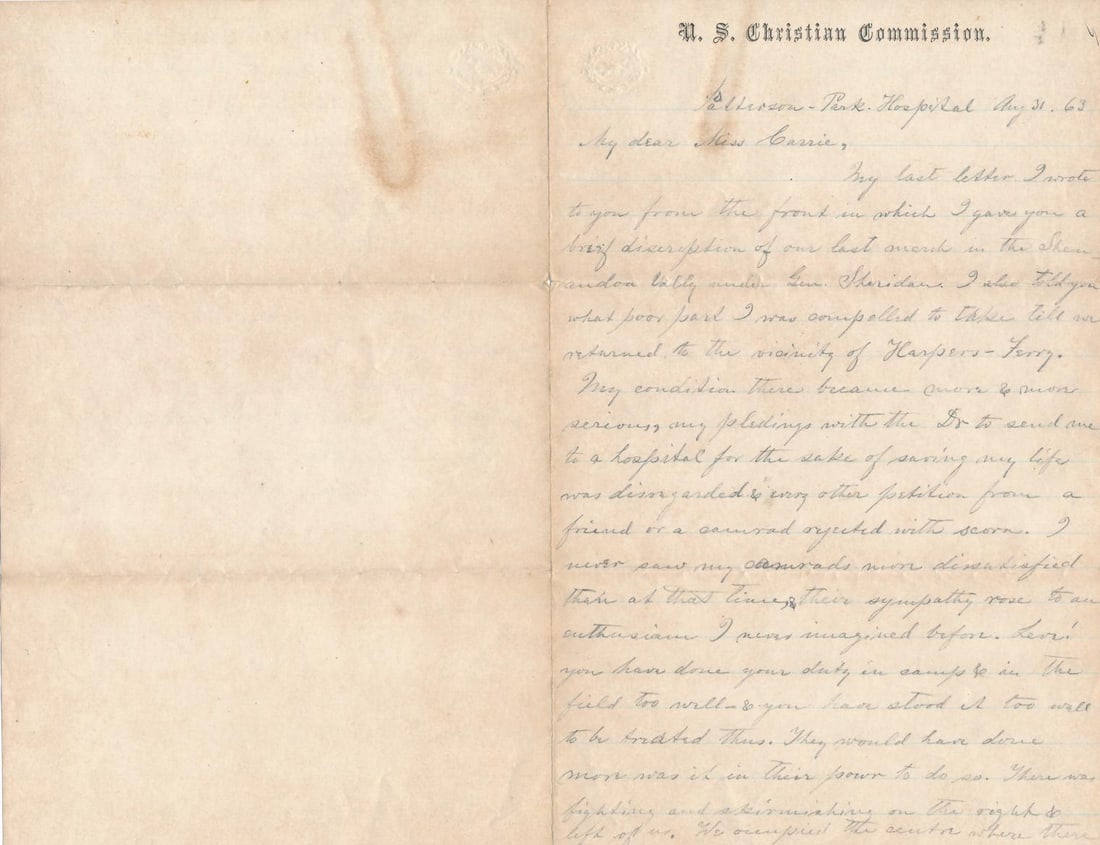 U. S. Christian Commission.
Patterson-Park. Hospital Aug 31. 63
My dear Miss Carrie,
My last letter I wrote
to you from the front in which I gave you a
brief discription of our last march in the Shen-
andoa Vally under Gen. Sheridan. I also told you
what poor part I was compelled to take till we
returned to the vicinity of Harpers-Ferry.
My condition there became more & more
serious, my pledings with the Dr to send me
to a hospital for the sake of saving my life
was disregarded & every other petition from a
friend or a camrad rejected with scorn. I
never saw my camrads more dissatisfied
than at that time, & their sympathy rose to an
enthusiasm I never imagined before. Levi!
you have done your duty in camp & in the
field too well - & you have stood it too well
to be treated thus. They would have done
more was it in their power to do so. There was
fighting and skirmishing on the right &
left of us. We occupied the centre where there